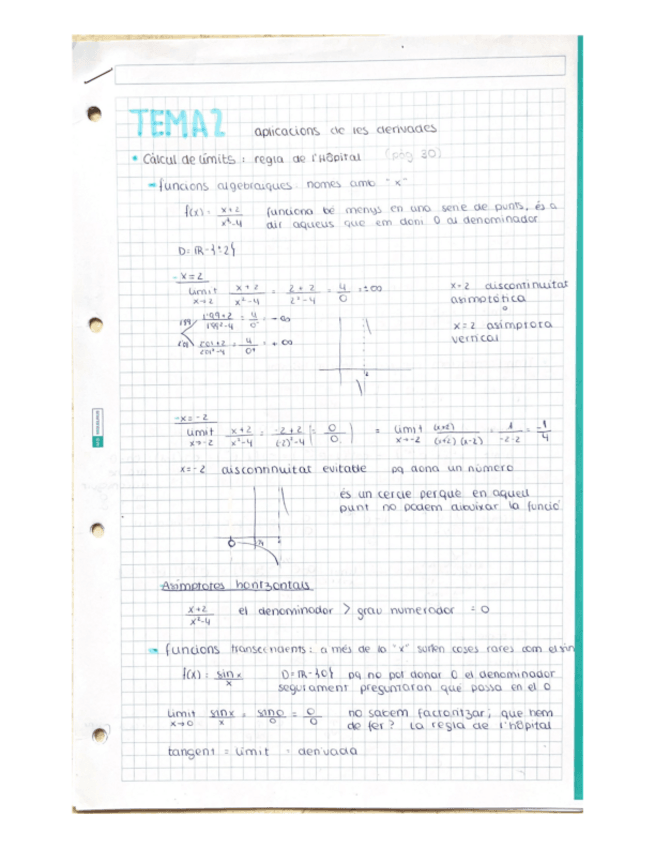 TEMA 2 aplicacions de les derivades
• Càlcul de límits: regla de l'Hôpital (pág 30)
funcions algebraiques: nomes amb "x"
f(x) = x+2 / x²-4 funciona bé menys en una serie de punts, és a
dir aquells que em doni 0 al denominador
D = ℝ - {±2}
- x = 2
límit x→2 x+2 / x²-4 = 2+2 / 2²-4 = 4/0 = ±∞
x=2 discontinuitat
asimptòtica
1'99 1'99+2 / 1'99²-4 = 4/0⁻ = -∞
x=2 asímptota
vertical
2'01 2'01+2 / 2'01²-4 = 4/0⁺ = +∞
- x = -2
límit x→-2 x+2 / x²-4 = -2+2 / (-2)²-4 = 0/0 = límit x→-2 (x+2) / (x+2)(x-2) = 1 / -2-2 = -1/4
x=-2 discontinuitat evitable pq dona un número
és un cercle perque en aquell
punt no podem dibuixar la funció
Asímptotes horitzontals
x+2 / x²-4 el denominador > grau numerador = 0
funcions transcendents: a més de la "x" surten coses rares com el sin
f(x) = sin x / x D = ℝ - {0} pq no pot donar 0 el denominador
segurament preguntaran què passa en el 0
límit x→0 sin x / x = sin 0 / 0 = 0/0 no sabem factoritzar; que hem
de fer? La regla de l'hôpital
tangent = límit = derivada